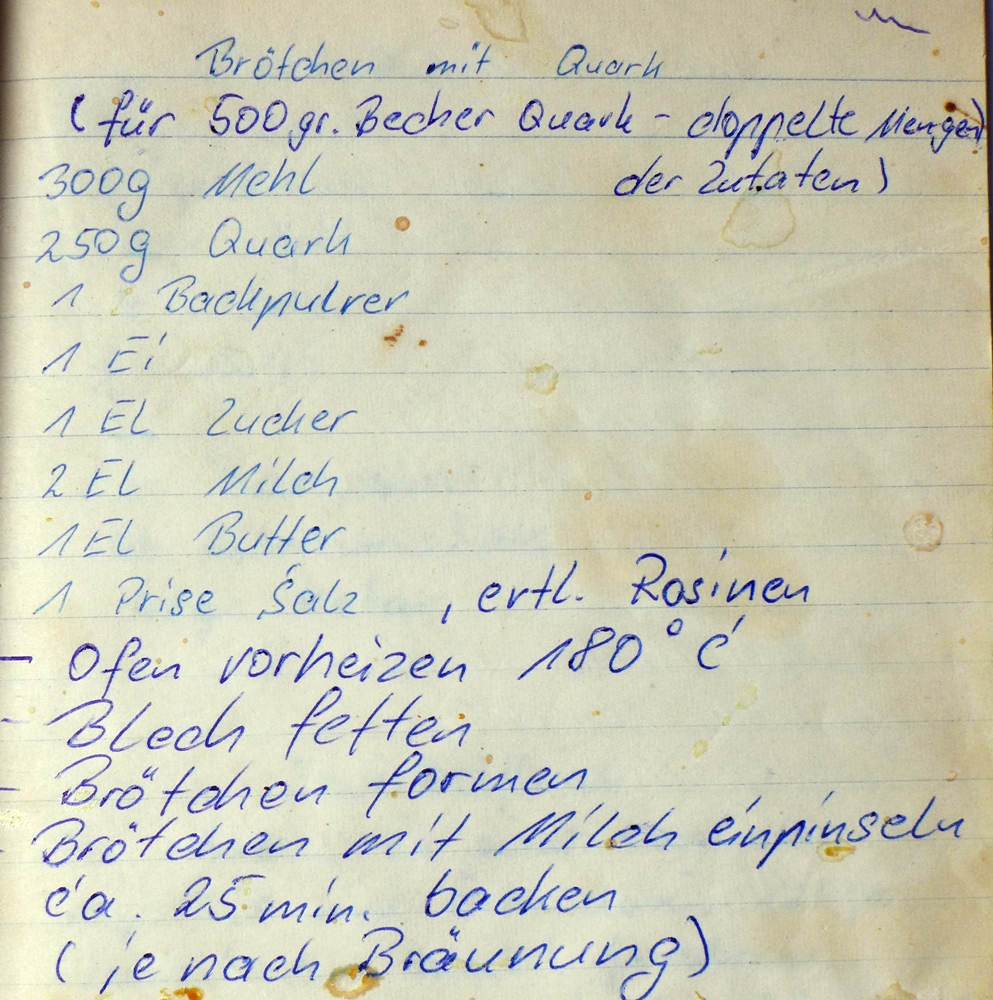 Brötchen mit Quark
(für 500gr. Becher Quark - doppelte Mengen
der Zutaten)
300g Mehl
250g Quark
1 Backpulver
1 Ei
1 EL Zucker
2 EL Milch
1 EL Butter
1 Prise Salz , evtl. Rosinen
- Ofen vorheizen 180° C
- Blech fetten
- Brötchen formen
- Brötchen mit Milch einpinseln
ca. 25 min. backen
(je nach Bräunung)